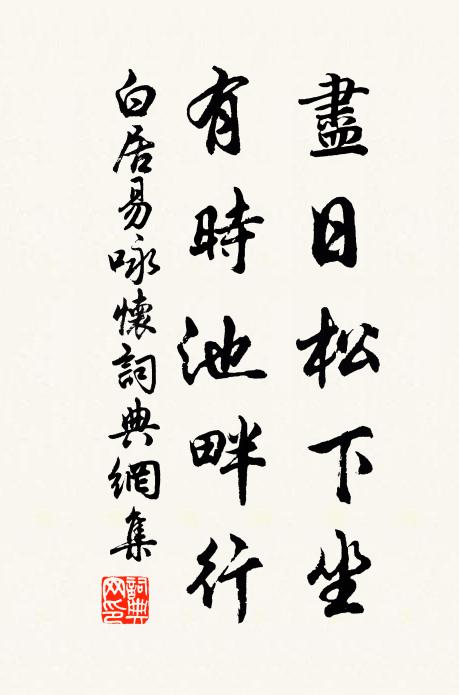 盡日松下坐
有時池畔行
白居易咏懷詞典網集
詞典网印